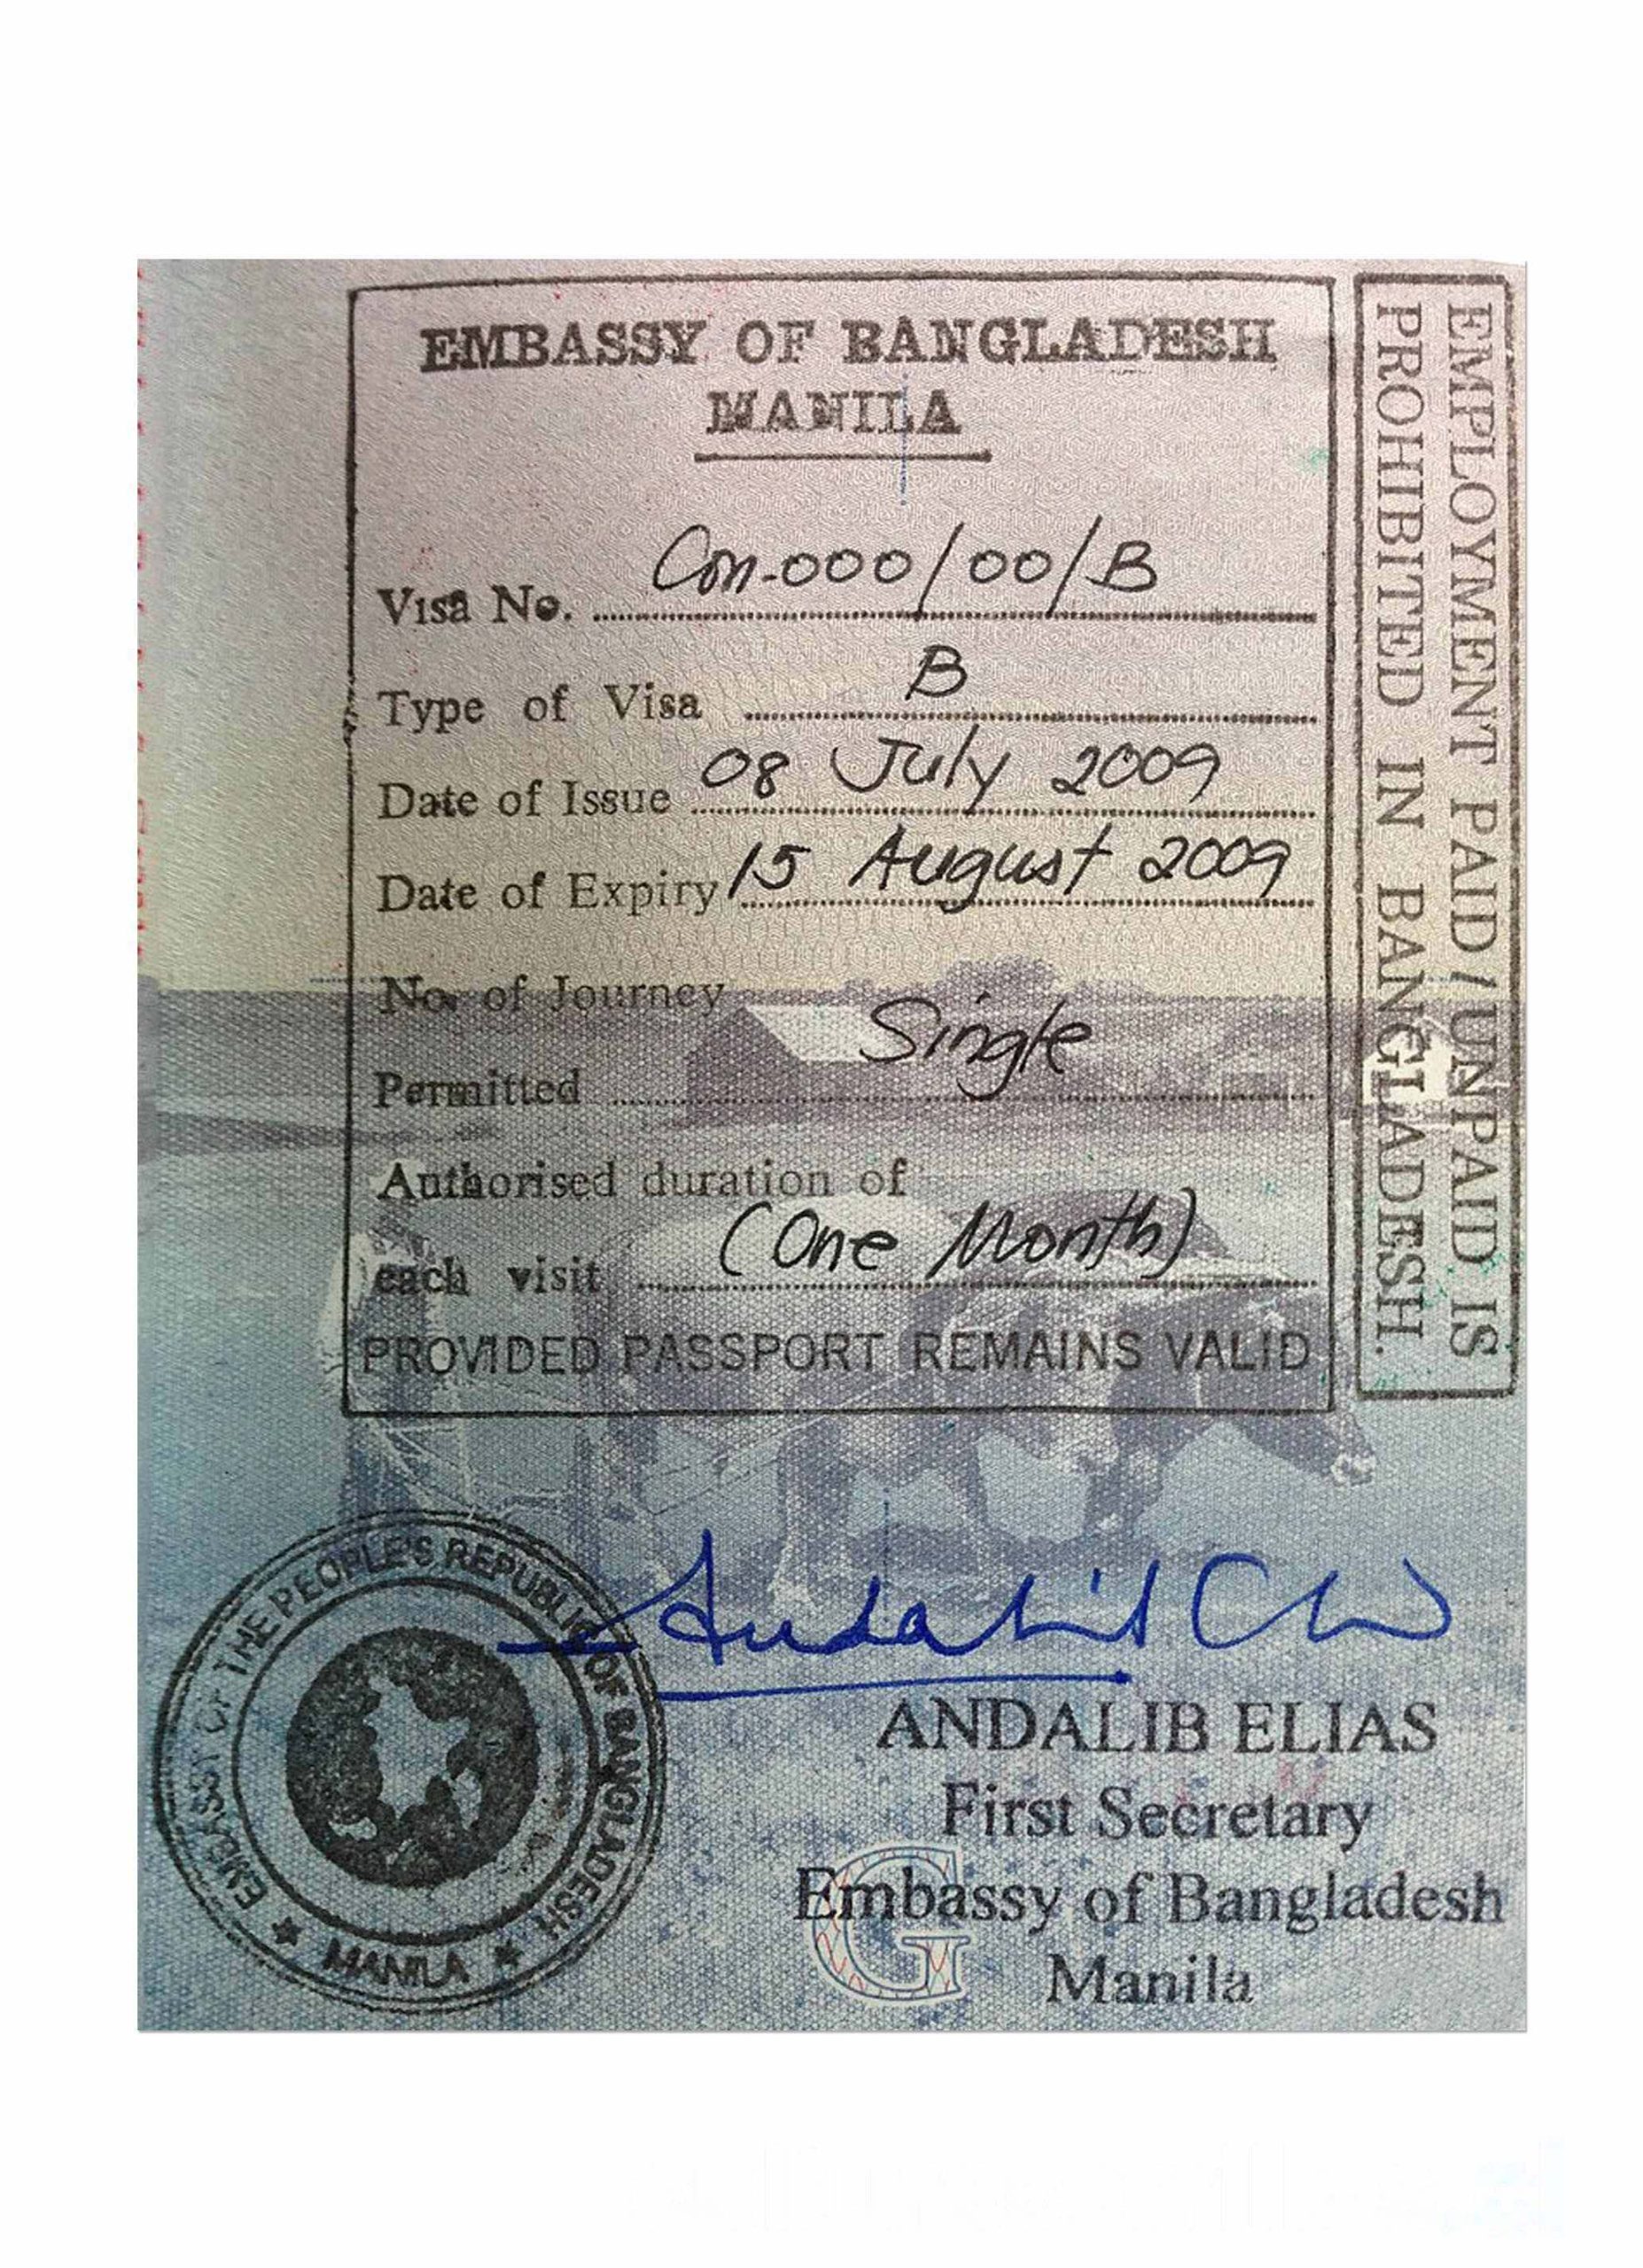 EMBASSY OF BANGLADESH
MANILA
Visa No. Con-000/00/B
Type of Visa B
Date of Issue 08 July 2009
Date of Expiry 15 August 2009
No. of Journey
Permitted Single
Authorised duration of
each visit (One Month)
PROVIDED PASSPORT REMAINS VALID
EMPLOYMENT PAID / UNPAID IS
PROHIBITED IN BANGLADESH.
EMBASSY OF THE PEOPLE'S REPUBLIC OF BANGLADESH
★ MANILA ★
ANDALIB ELIAS
First Secretary
Embassy of Bangladesh
G
Manila